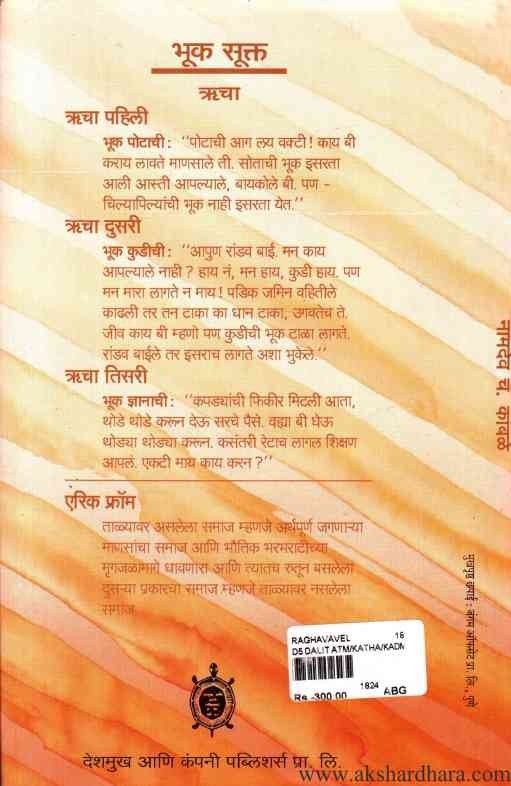 भूक सूक्त
ऋचा
ऋचा पहिली
भूक पोटाची : ''पोटाची आग लय वक्टी ! काय बी
कराय लावते माणसाले ती. सोताची भूक इसरता
आली आस्ती आपल्याले, बायकोले बी. पण -
चिल्यापिल्यांची भूक नाही इसरता येत.''
ऋचा दुसरी
भूक कुडीची : ''आपुण रांडव बाई. मन काय
आपल्याले नाही ? हाय नं, मन हाय, कुडी हाय. पण
मन मारा लागते न माय ! पडिक जमिन वहितीले
काढली तर तन टाका का धान टाका, उगवतेच ते.
जीव काय बी म्हणो पण कुडीची भूक टाळा लागते.
रांडव बाईले तर इसराच लागते अशा भुकेले.''
ऋचा तिसरी
भूक ज्ञानाची : ''कपड्यांची फिकीर मिटली आता,
थोडे थोडे करून देऊ सरचे पैसे. वह्या बी घेऊ
थोड्या थोड्या करून. कसंतरी रेटाच लागल शिक्षण
आपलं. एकटी माय काय करन ?''
एरिक फ्रॉम
ताळ्यावर असलेला समाज म्हणजे अर्थपूर्ण जगणाऱ्या
माणसांचा समाज आणि भौतिक भरभराटीच्या
मृगजळामागे धावणारा आणि त्यातच रुतून बसलेला
दुसऱ्या प्रकारचा समाज म्हणजे ताळ्यावर नसलेला
समाज
नामदेव च. कावळे
मुखपृष्ठ छपाई : प्रा. लि., पुणे
RAGHAVAVEL 16
D5 DALIT ATM/KATHA/KADM
1824
Rs.-300.00 ABG
देशमुख आणि कंपनी पब्लिशर्स प्रा. लि.
www.akshardhara.com